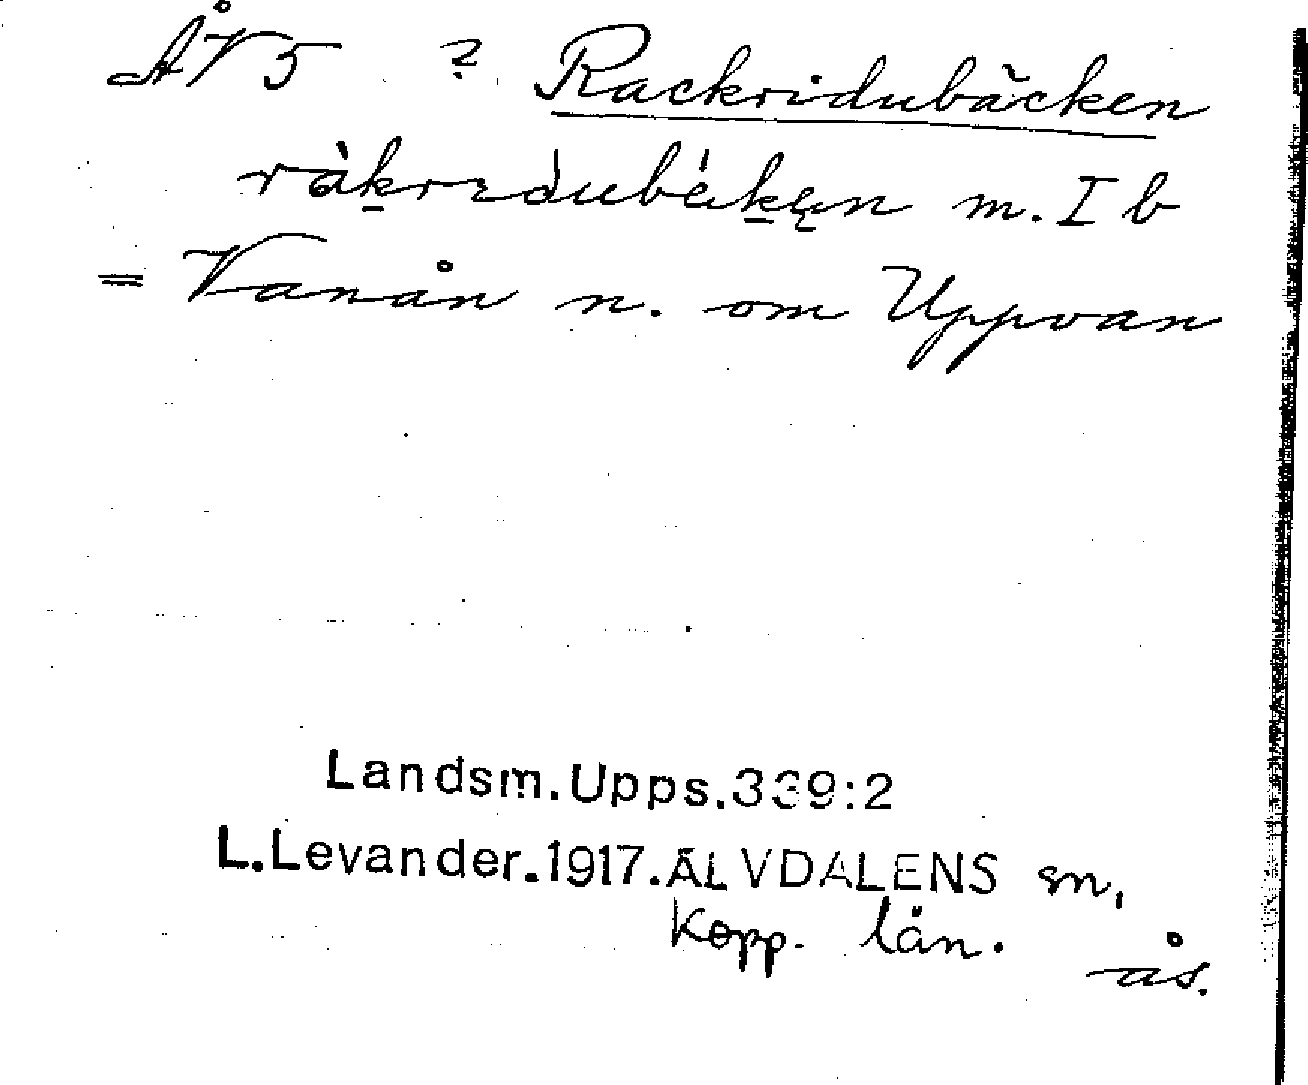 ÅV5 ? Rackridubäcken
ràkridubèken m. I b
= Vanån n. om Uppvan
Landsm.Upps.339:2
L.Levander.1917.ÄLVDALENS sn,
Kopp. län.
ås.